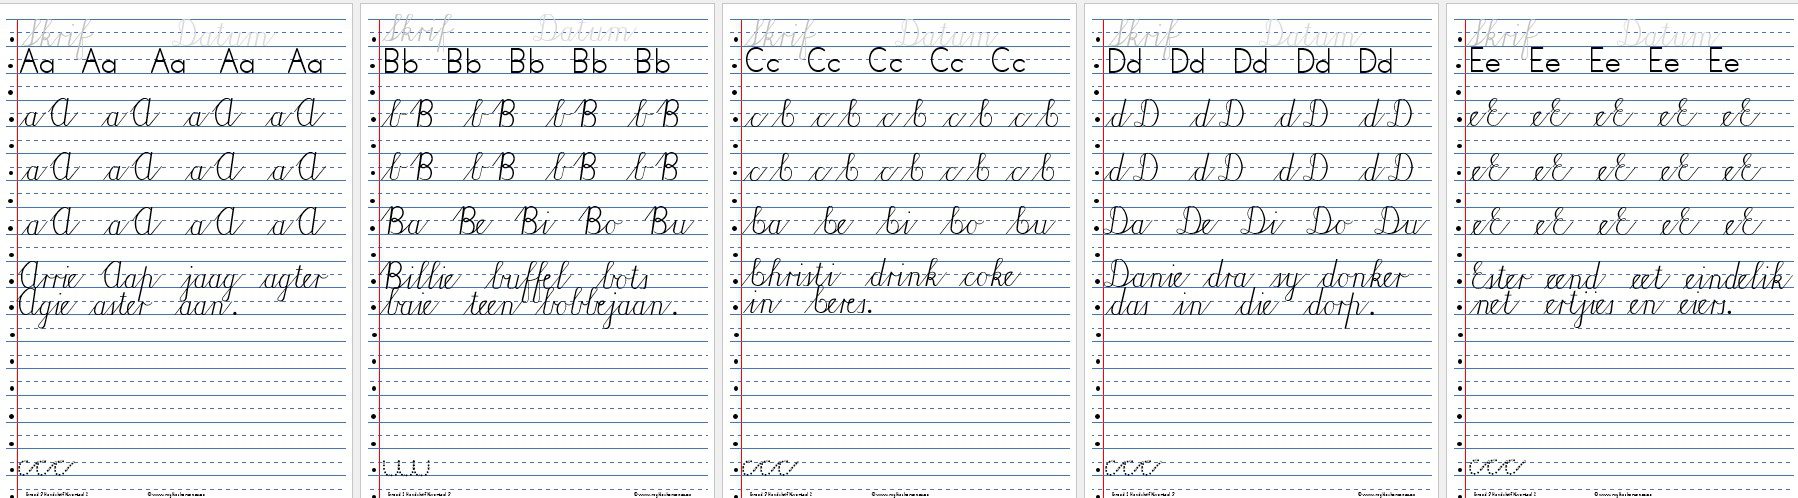 Skrif Datum
Aa Aa Aa Aa Aa
aA aA aA aA
aA aA aA aA
aA aA aA aA
Arrie Aap jaag agter
Agie aster aan.
ccc
Skrif Datum
Bb Bb Bb Bb Bb
bB bB bB bB
bB bB bB bB
Ba Be Bi Bo Bu
Billie buffel bots
baie teen bobbejaan.
Skrif Datum
Cc Cc Cc Cc Cc
cC cC cC cC cC
cC cC cC cC cC
Ca Ce Ci Co Cu
Christi drink coke
in Ceres.
ccc
Skrif Datum
Dd Dd Dd Dd Dd
dD dD dD dD
dD dD dD dD
Da De Di Do Du
Danie dra sy donker
das in die dorp.
ccc
Skrif Datum
Ee Ee Ee Ee Ee
eE eE eE eE eE
eE eE eE eE eE
eE eE eE eE eE
Ester eend eet eindelik
net ertjies en eiers.
ccc